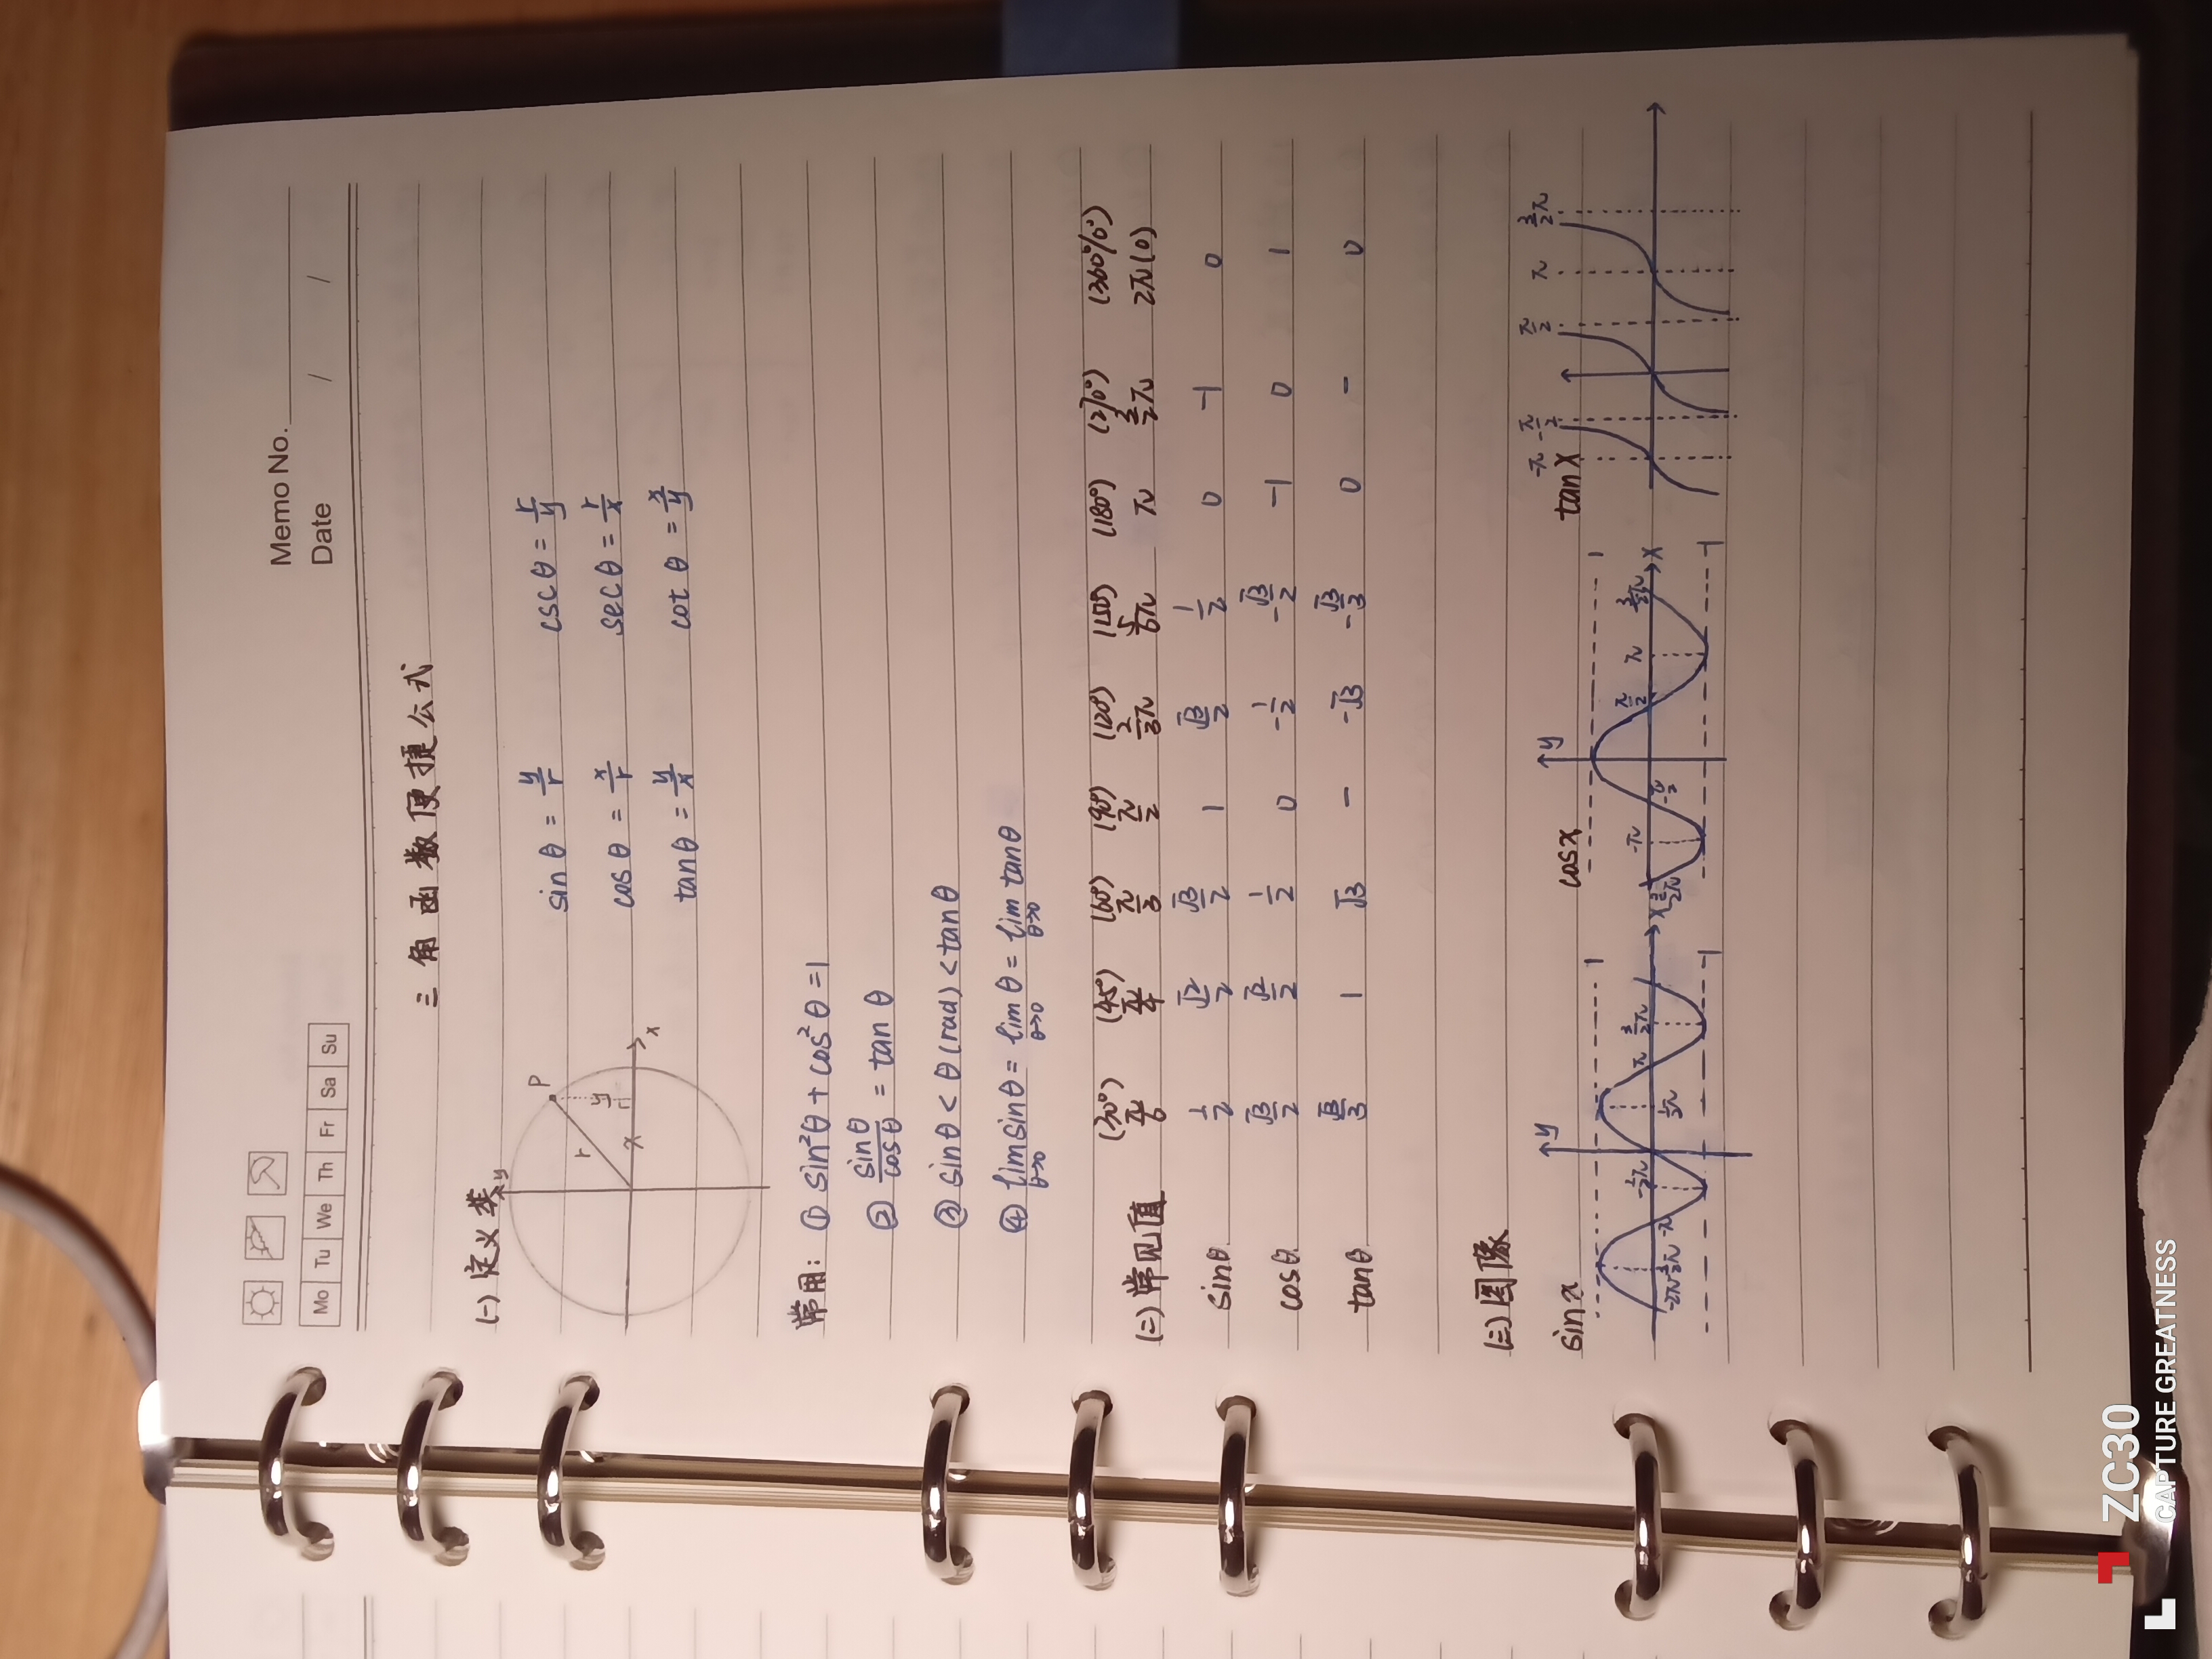 Memo No.
Mo Tu We Th Fr Sa Su
Date / /
三角函数便捷公式
(一) 定义类
y
P
r
y
x
x
sinθ = y/r cscθ = r/y
cosθ = x/r secθ = r/x
tanθ = y/x cotθ = x/y
常用: ① sin²θ + cos²θ = 1
② sinθ/cosθ = tanθ
③ sinθ < θ(rad) < tanθ
④ lim θ→0 sinθ = lim θ→0 θ = lim θ→0 tanθ
(30°) (45°) (60°) (90°) (120°) (150°) (180°) (270°) (360°/0°)
(二) 常见值 π/6 π/4 π/3 π/2 2/3π 5/6π π 3/2π 2π(0)
sinθ 1/2 √2/2 √3/2 1 √3/2 1/2 0 -1 0
cosθ √3/2 √2/2 1/2 0 -1/2 -√3/2 -1 0 1
tanθ √3/3 1 √3 - -√3 -√3/3 0 - 0
(三) 图像
sinx
y
1
-2π -3/2π -π -1/2π 1/2π π 3/2π
X
-1
cosx
y
1
-3/2π -π -π/2 π/2 π 3/2π
X
-1
tanX
-π -π/2 π/2 π 3/2π
ZC30
CAPTURE GREATNESS